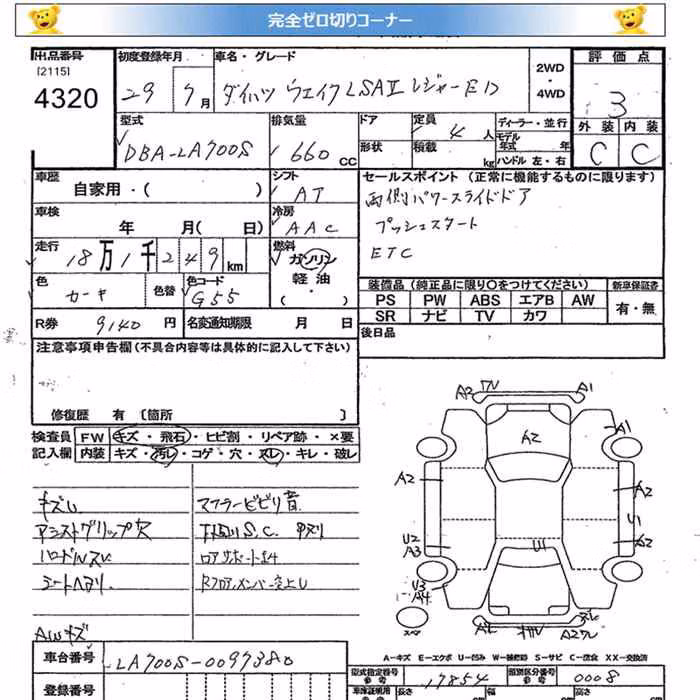 完全ゼロ切りコーナー
出品番号 初度登録年月 車名・グレード 2WD・4WD 評価点
[2115]
4320 29 7月 ダイハツ ウェイク LSAⅡ レジャーED 3
外装 内装
C C
型式 排気量 ドア 定員 4人 ディーラー・並行
モデル年式 年
DBA-LA700S 660cc 形状 積載 kg ハンドル 左・右
車歴 シフト セールスポイント (正常に機能するものに限ります)
自家用・( ) AT 両側パワースライドドア
車検 冷房 プッシュスタート
年 月(日) AAC ETC
走行 18万1千249km 燃料 ガソリン
軽油・( )
色 色替 色コード
カーキ G55
装備品 (純正品に限り○をつけてください) 新車保証書
PS PW ABS エアB AW 有・無
SR ナビ TV カワ
R券 9140円 名変通知期限 月 日 後日品
注意事項申告欄(不具合内容等は具体的に記入して下さい)
修復歴 有 [箇所 ]
検査員 FW キズ・飛石・ヒビ割・リペア跡・×要
記入欄 内装 キズ・汚レ・コゲ・穴・スレ・キレ・破レ
マフラービビリ音
アシストグリップ欠 下廻りS.C.
ハンドルスレ ロアサポートサキ
シートヘタリ Rフロアメンバー突上し
AWキズ
A2 A1
A2
A1
A2 A2
U1
U2 A3 U1 A2
U3 A4
スペア
A-キズ E-エクボ U-凹み W-補修跡 S-サビ C-腐食 XX-交換済
車台番号 LA700S-0097380
型式指定番号 参考 17854 類別区分番号 参考 0008
登録番号 車庫証明用 参考 長さ 幅 高さ